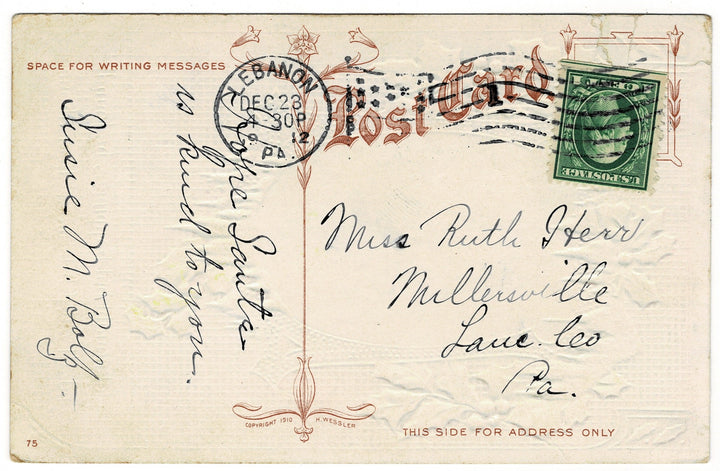 SPACE FOR WRITING MESSAGES
Post Card
LEBANON
DEC 23
4-30P
1912
PA.
U.S. POSTAGE
I Hope Santa
is kind to you.
Susie M. Bolz
Miss Ruth Herr
Millersville
Lanc. Co
Pa.
COPYRIGHT 1910 H. WESSLER
THIS SIDE FOR ADDRESS ONLY
75